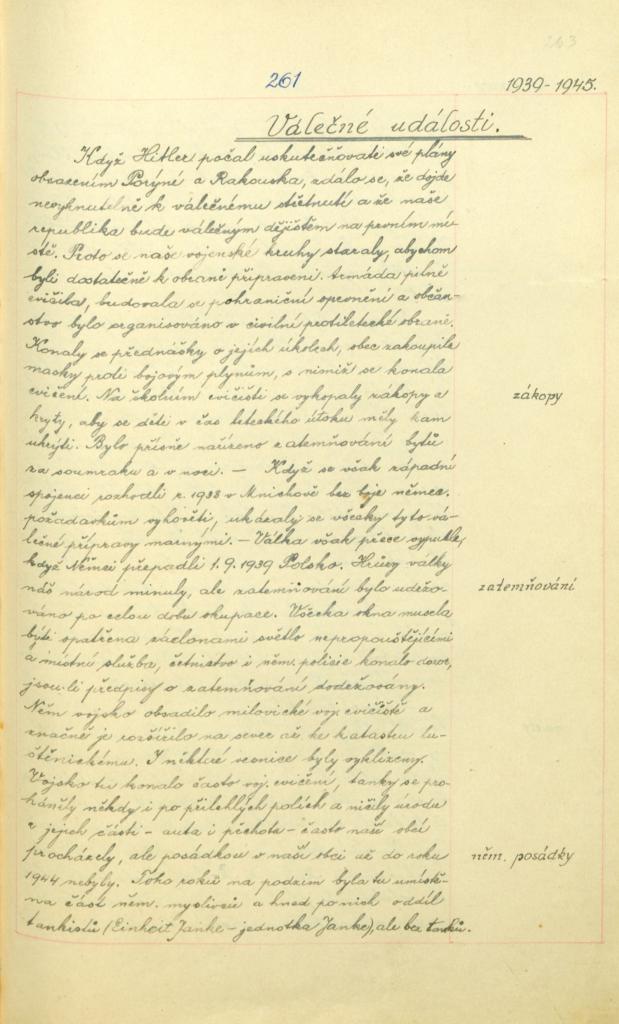 263
261
1939-1945.
Válečné události.
Když Hitler počal uskutečňovati své plány
obsazením Porýné a Rakouska, zdálo se, že dojde
nevyhnutelně k válečnému střetnutí a že naše
republika bude válečným dějištěm na prvním mí-
stě. Proto se naše vojenské kruhy staraly, abychom
byli dostatečně k obraně připraveni. Armáda pilně
cvičila, budovala se pohraniční opevnění a občan-
stvo bylo organisováno v civilní protiletecké obraně.
Konaly se přednášky o jejích úkolech, obec zakoupila
masky proti bojovým plynům, s nimiž se konala
cvičení. Na školním cvičišti se vykopaly zákopy a
zákopy
kryty, aby se děti v čas leteckého útoku měly kam
ukrýti. Bylo přísně nařízeno zatemňování bytů
za soumraku a v noci. — Když se však západní
spojenci rozhodli r. 1938 v Mnichově bez boje němec.
požadavkům vyhověti, ukázaly se všecky tyto vá-
lečné přípravy marnými. — Válka však přece vypukla,
když Němci přepadli 1. 9. 1939 Polsko. Hrůzy války
náš národ minuly, ale zatemňování bylo udržo-
zatemňování
váno po celou dobu okupace. Všecka okna musela
býti opatřena záclonami světlo nepropouštějícími
a místní služba, četnictvo i něm. policie konalo dozor,
jsou-li předpisy o zatemňování dodržovány.
Něm vojsko obsadilo milovické voj. cvičiště a
značně je rozšířilo na sever až ke katastru lu-
štěnickému. I některé vesnice byly vyklizeny.
Vojsko tu konalo často voj. cvičení, tanky se pro-
háněly někdy i po přilehlých polích a ničily úrodu
a jejich části - auta i pěchota - často naší obcí
procházely, ale posádkou v naší obci až do roku
něm. posádky
1944 nebyly. Toho roku na podzim byla tu umístě-
na část něm. myslivců a hned po nich oddíl
tankistů (Einheit Janke - jednotka Janke), ale bez tanků.